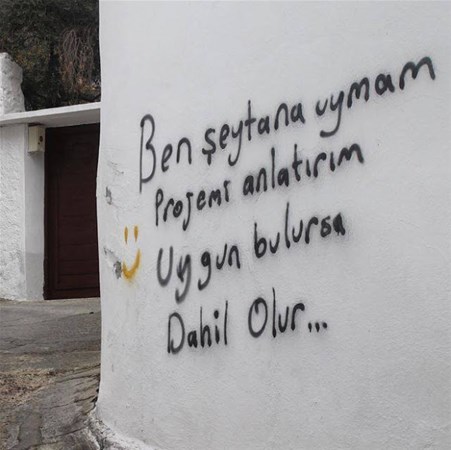 Ben şeytana uymam
Projemi anlatırım
Uygun bulursa
Dahil Olur...